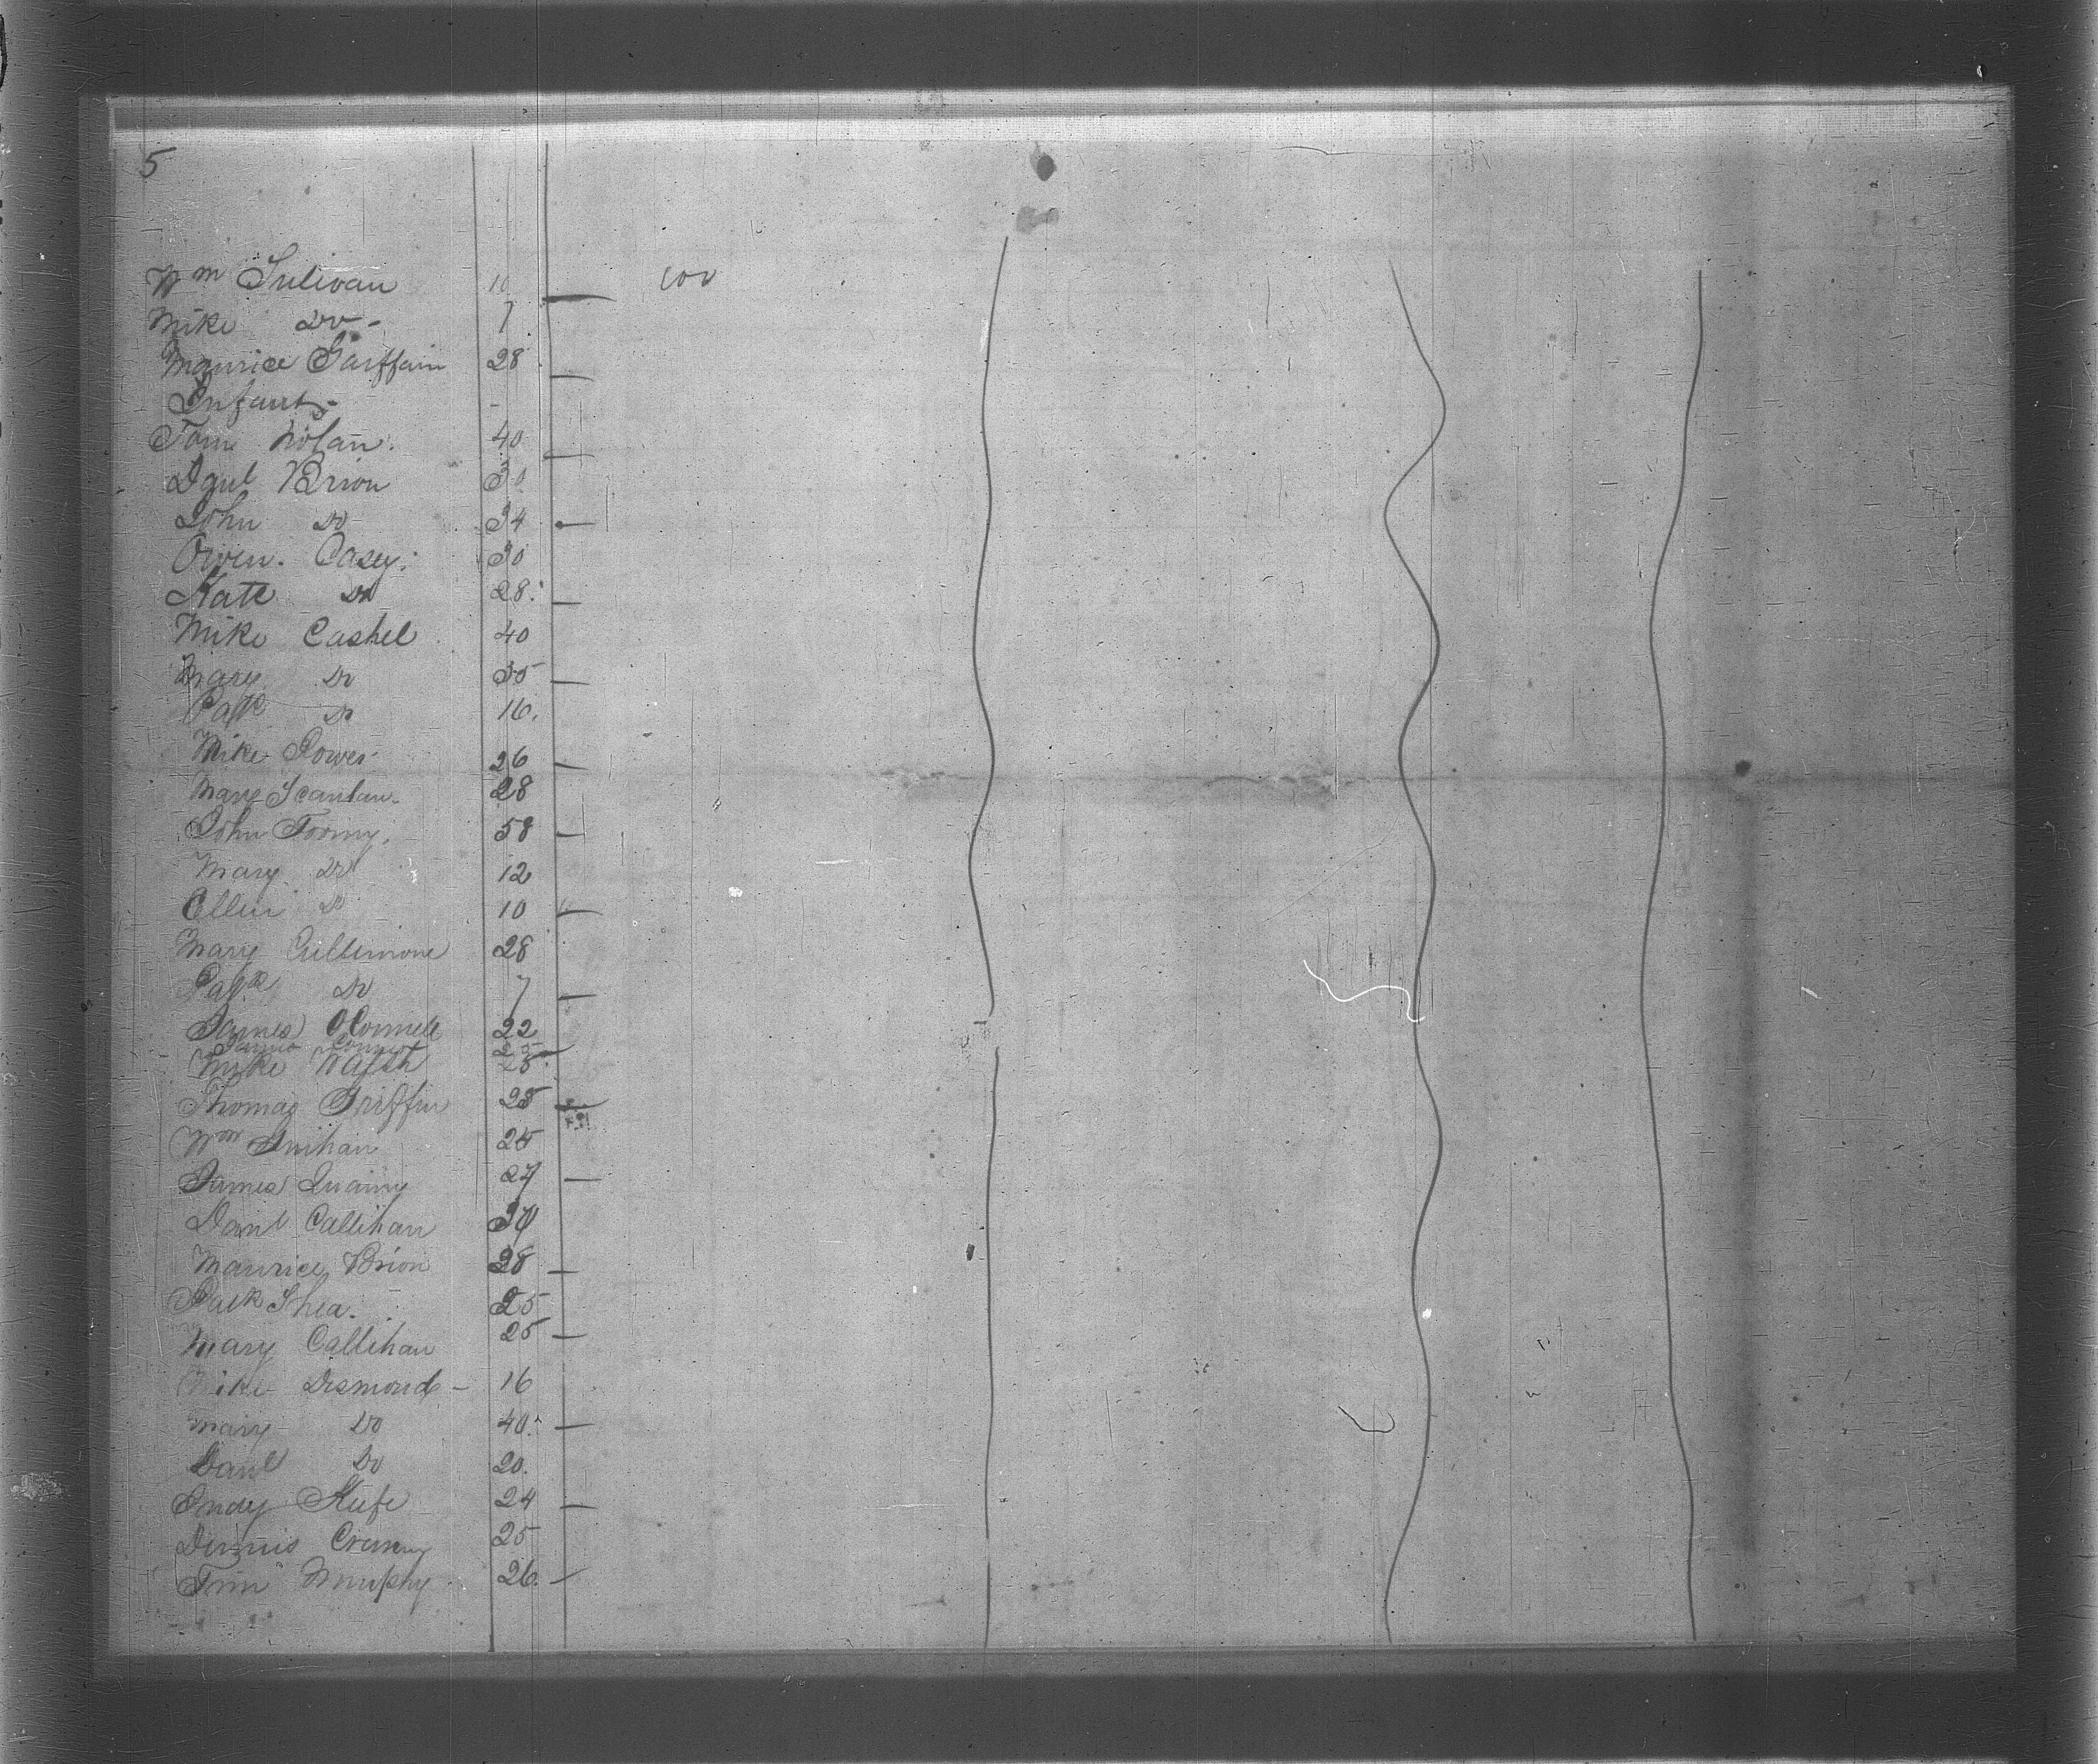 5
Wm Sulivan 10
Mike Do - 7
Maurice 28
Infant - -
Tom Nolan. 40
Danl Brion 30
John Do 34
Owen. Casey. 30
Kate Do 28.
Mike Cashel 40
Mary Do 35
Patk Do 16.
Mike Power 26
Mary Scanlan 28
John Toomy. 58
Mary Do 12
Ellin Do 10
Mary 28
Patk Do 7
James OConnell 22
James Connor 25
Mike Walsh 25
Thomas Griffin 25
Wm 25
James 27
Danl Callihan 30
Maurice Brion 28
Patk Shea. 25
Mary Callihan 25
Mike Dismond - 16
Mary Do 40.
Danl Do 20.
Andy Kufe 24
Dennis 25
Tim Murphy 26.